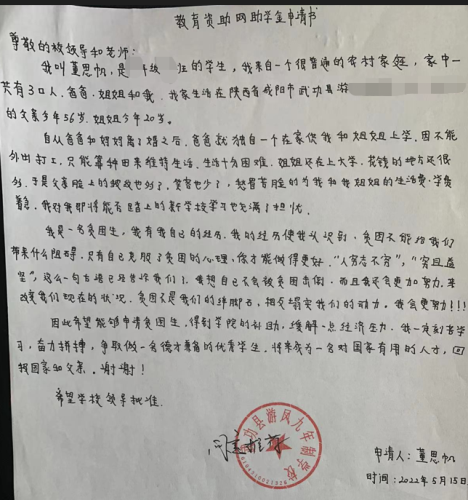 教育资助网助学金申请书
尊敬的校领导和老师:
我叫董思帆,是 级 班的学生,我来自一个很普通的农村家庭,家中一
共有3口人,爸爸、姐姐和我,我家生活在陕西省咸阳市武功县游
的父亲今年56岁,姐姐今年20岁。
自从爸爸和妈妈离婚之后,爸爸就独自一个在家供我和姐姐上学,因不能
外出打工,只能靠种田来维持生活。生活十分困难。姐姐还在上大学,花钱的地方还很
多,于是父亲脸上的皱纹也多了,笑容也少了,愁眉苦脸的为我和我姐姐的生活费、学费
着急,我对我即将能否踏上的新学校学习也充满了担忧。
我是一名贫困生,我有我自己的经历,我的经历使我认识到,贫困不能给我们
带来什么阻碍,只有自己克服了贫困的心理,你才能做得更好。“人穷志不穷”,“穷且益
坚”,这么一句古语已经告诉我们,我想自己不会被贫困击倒,而且我还会更加努力,来
改变我们现在的状况。贫困不是我们的绊脚石,相反,是我们的动力。我会更努力!!!
因此希望能够申请贫困生,得到学院的补助,缓解一点经济压力。我一定刻苦学
习,奋力拼搏,争取做一名德才兼备的优秀学生,将来成为一名对国家有用的人才,回
报国家和父亲。谢谢!
希望学校领导批准。
武功县游凤九年制学校
申请人:董思帆
时间:2022年5月15日